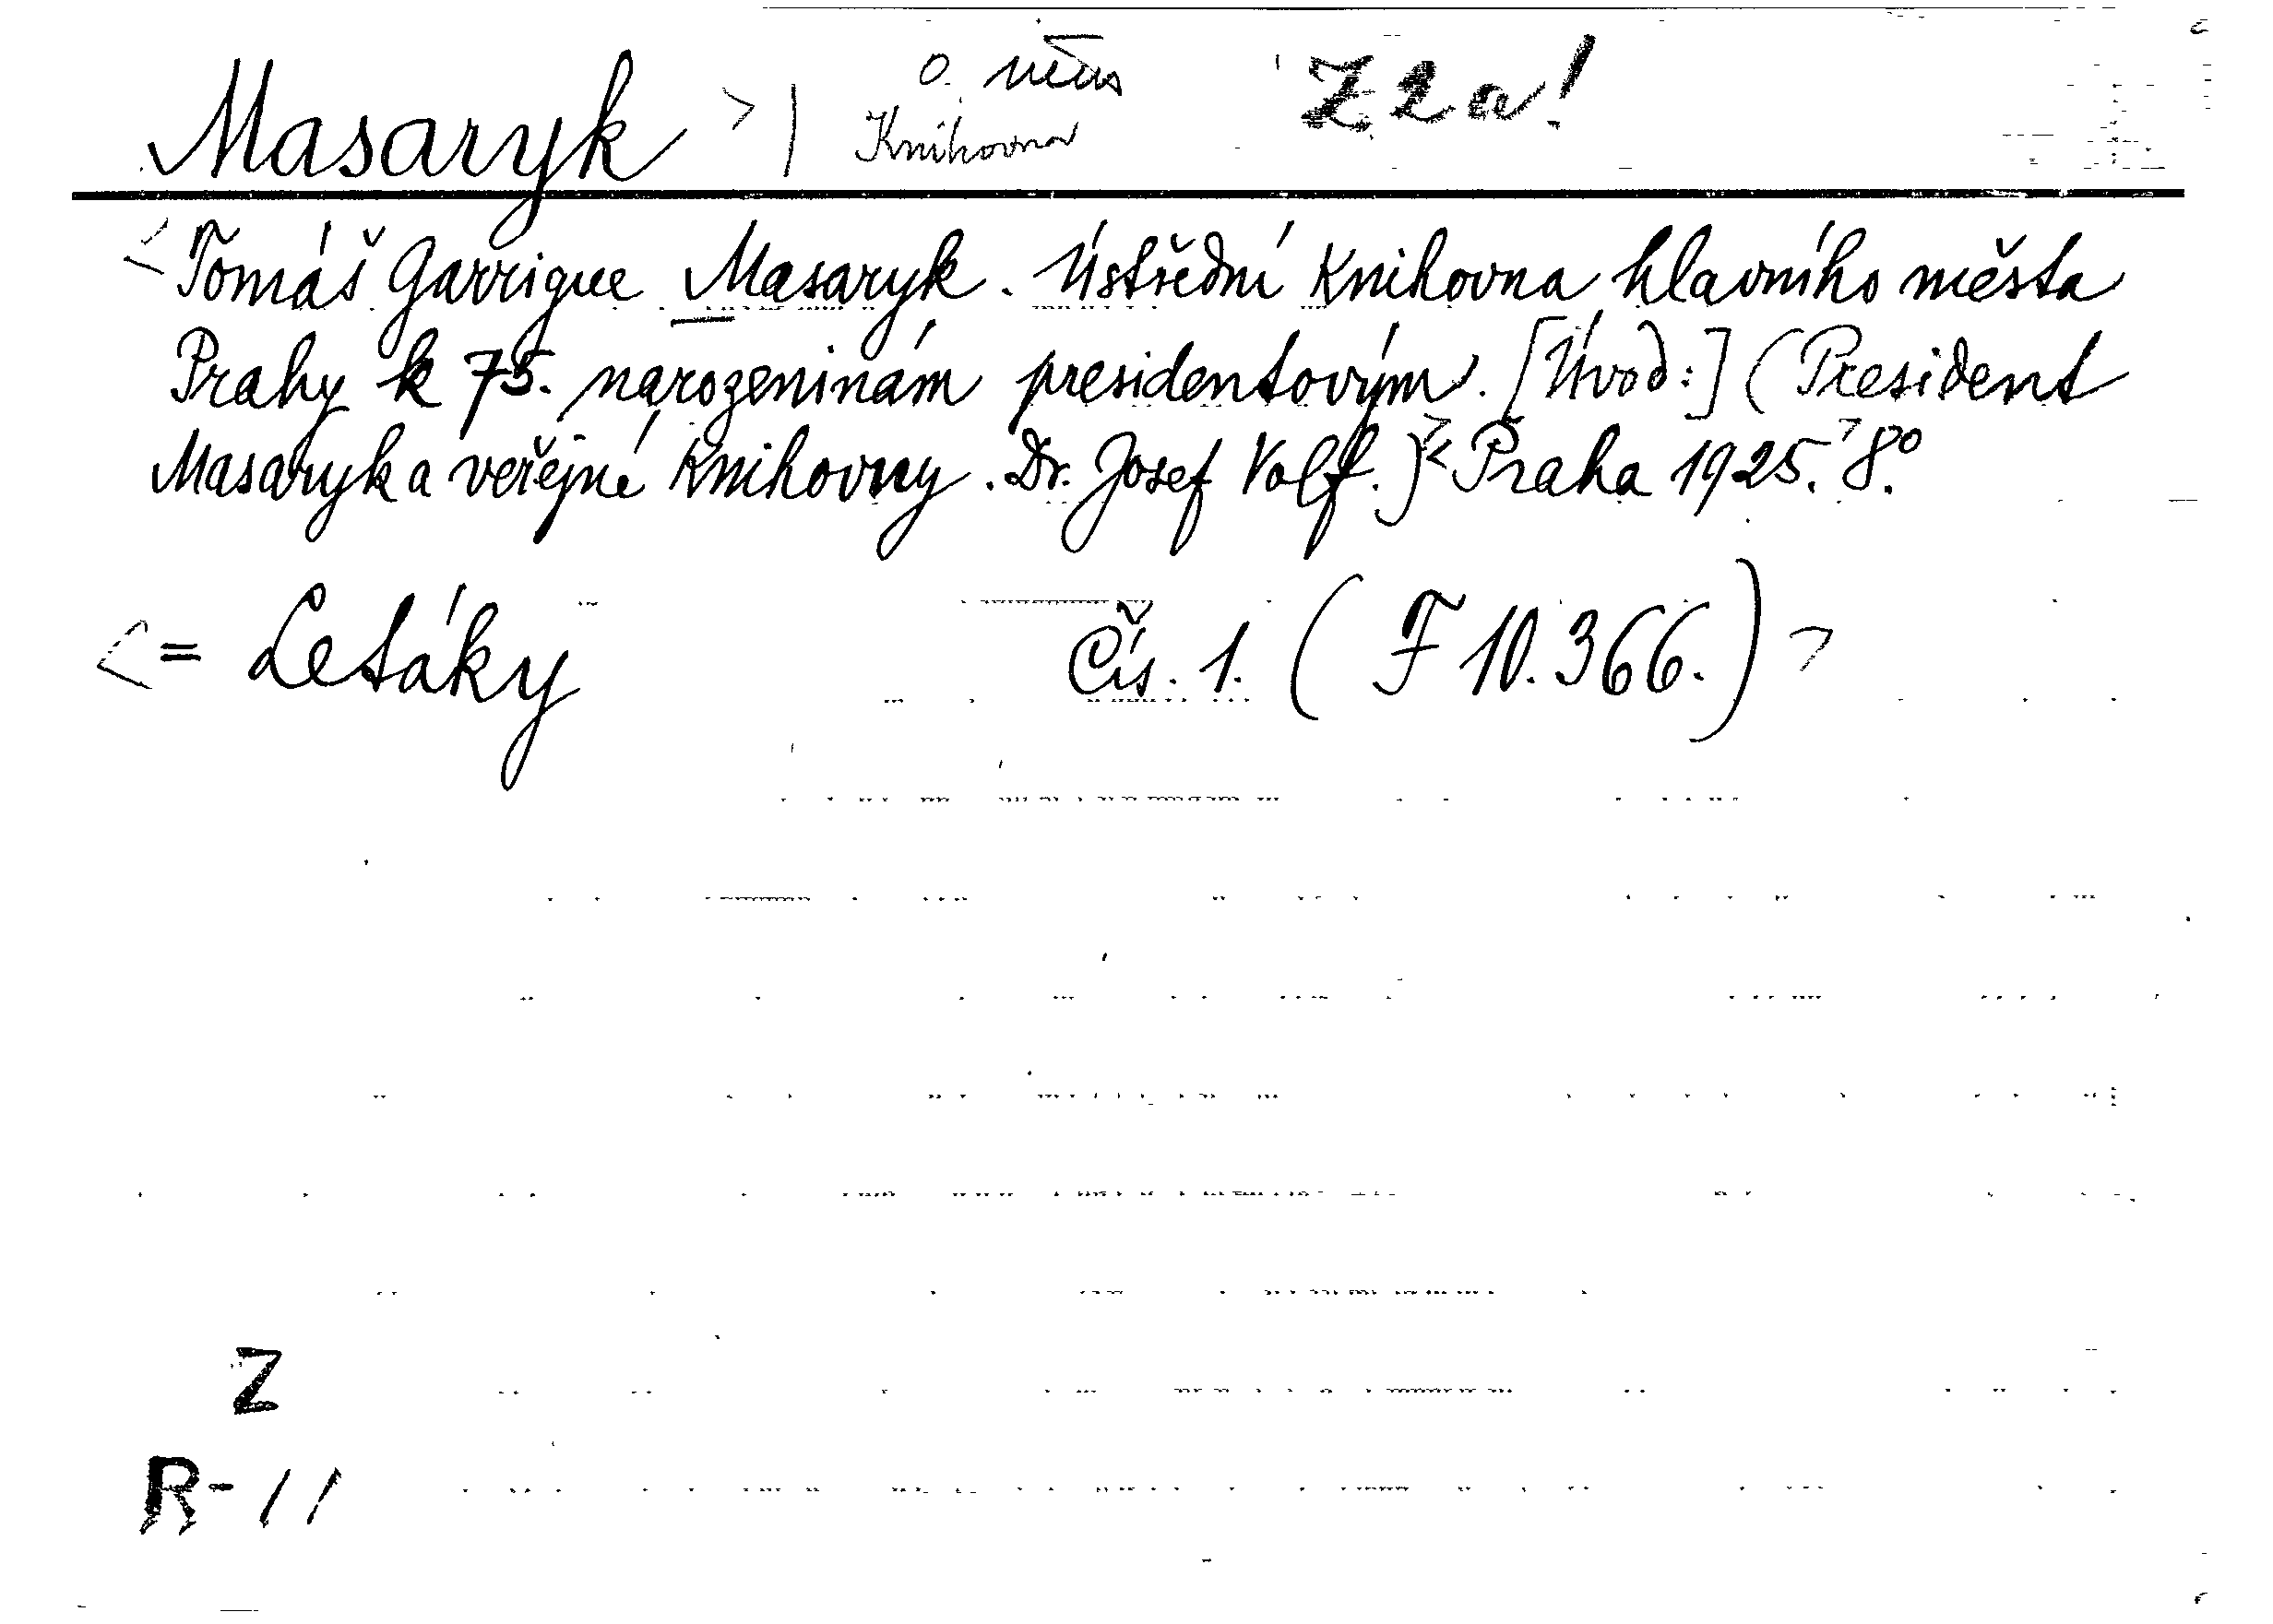 Masaryk > | Knihovna Z 2 a!
<Tomáš Garrigue Masaryk. Ústřední Knihovna hlavního města
Prahy k 75. narozeninám presidentovým. [Úvod:] (President
Masaryk a veřejné Knihovny. Dr. Josef Volf.)> <Praha 1925.> 8º.
<= Letáky Čís. 1. (F 10.366.)>
Z
R-11